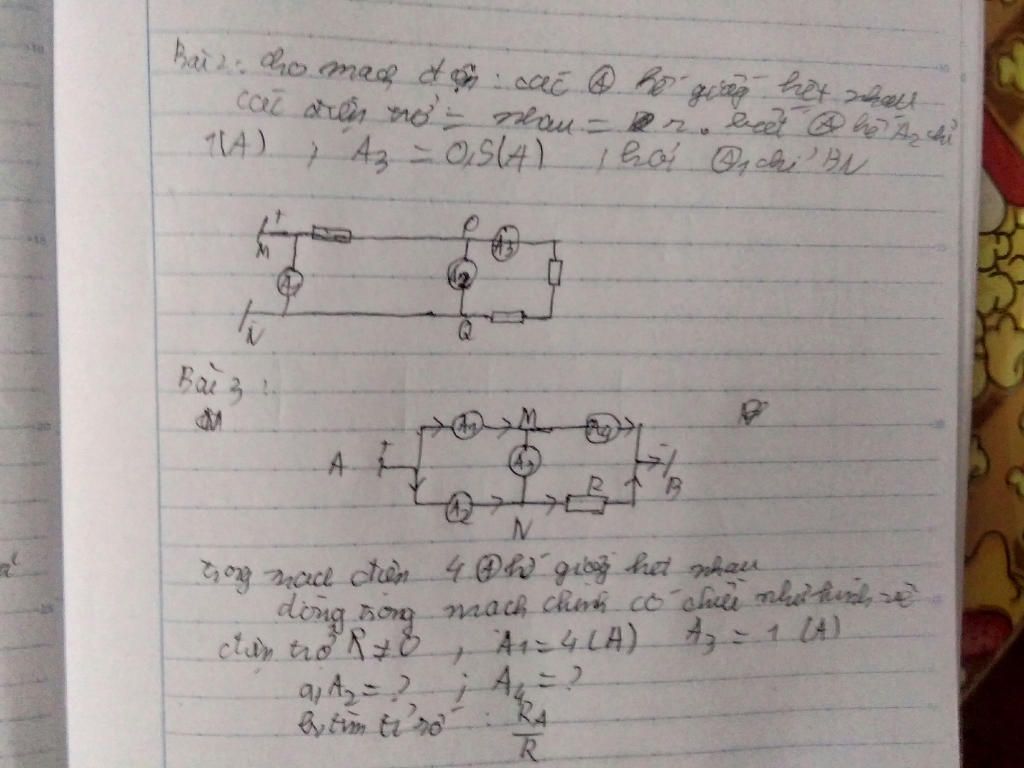 Bài 2: Cho mạch điện: các Ⓐ kế giống hệt nhau
các điện trở = nhau = r. biết Ⓐ kế A2 chỉ
1(A) ; A3 = 0,5(A) ; hỏi Ⓐ1 chỉ BN
+ P
M A3
A1 A2
N Q
Bài 3:
M
A1 M A4
A + A3 R - B
A2
N
trong mạch điện 4 Ⓐ kế giống hệt nhau
dòng trong mạch chính có chiều như hình vẽ
điện trở R ≠ 0 , A1 = 4(A) A3 = 1 (A)
a, A2 = ? ; A4 = ?
b, tìm tỉ số : RA/R